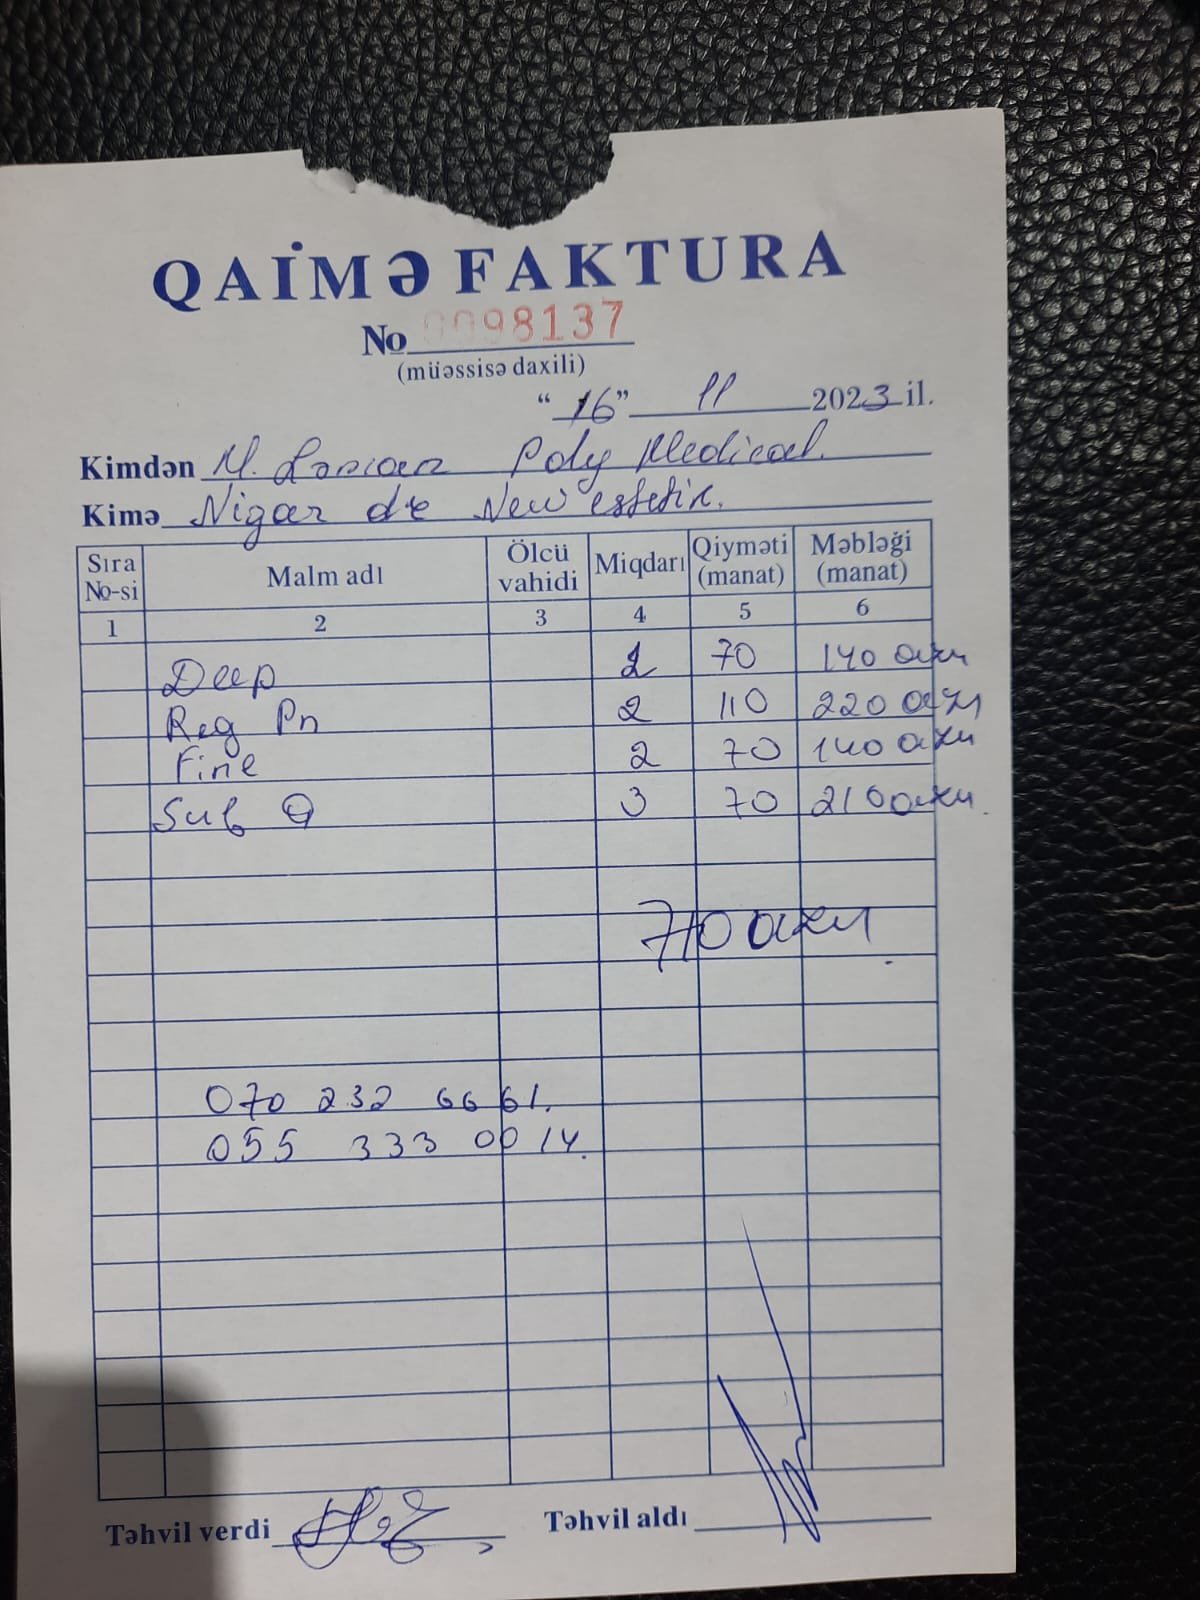 QAİMƏ FAKTURA
No 0098137
(müəssisə daxili)
"16" 11 2023 il.
Kimdən M. Poly Medical.
Kimə Nigar dr New estetik.
Sıra No-si Malın adı Ölcü vahidi Miqdarı Qiyməti (manat) Məbləği (manat)
1 2 3 4 5 6
Deep 2 70 140 azn
Reg Pn 2 110 220 azn
Fine 2 70 140 azn
Sub Q 3 70 210 azn
710 azn
070 232 66 61.
055 333 00 14.
Təhvil verdi Təhvil aldı